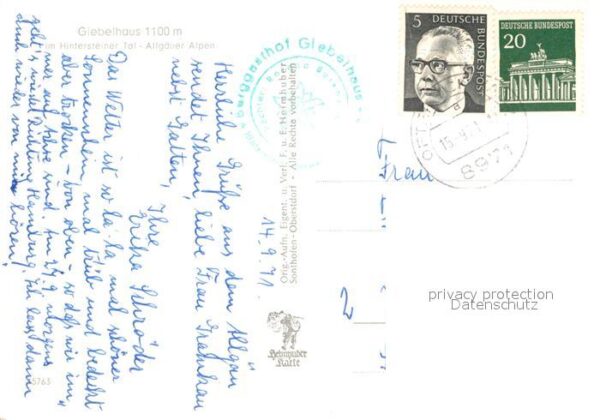 Giebelhaus 1100 m
im Hintersteiner Tal - Allgäuer Alpen
14.9.71
Herrliche Grüße aus dem Allgäu
sendet Ihnen, liebe Frau
nebst Gatten,
Ihre
Erika Schröder
Das Wetter ist so la-la, mal schöner
Sonnenschein, mal trüb und bedeckt
aber trocken - von oben - so daß wir im-
mer auf Achse sind. Am 24.9. morgens
geht's wieder Richtung Hamburg. Ich lass dann
auch wieder von mir hören!
Berggasthof Giebelhaus
Orig.-Aufn. Eigent. u. Verl. F. u. E. Heimhuber
Sonthofen-Oberstdorf - Alle Rechte vorbehalten
Heimhuber
Karte
5763
5
DEUTSCHE
BUNDESPOST
DEUTSCHE BUNDESPOST
20
8971
Frau
2
privacy protection
Datenschutz